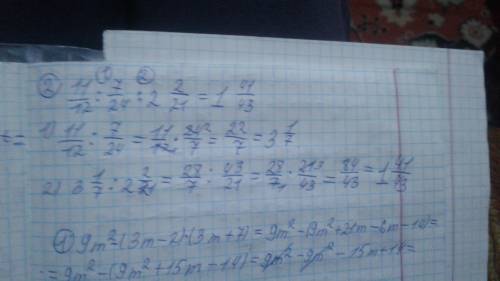 ① ②
② 11/12 : 7/24 : 2 2/21 = 1 41/43
1) 11/12 : 7/24 = 11/12 · 24²/7 = 22/7 = 3 1/7
2) 3 1/7 : 2 2/21 = 28/7 : 43/21 = 28/7 · 21³/43 = 84/43 = 1 41/43
① 9m² - (3m - 2)·(3m + 7) = 9m² - (9m² + 21m - 6m - 14) =
= 9m² - (9m² + 15m - 14) = 9m² - 9m² - 15m + 14 =